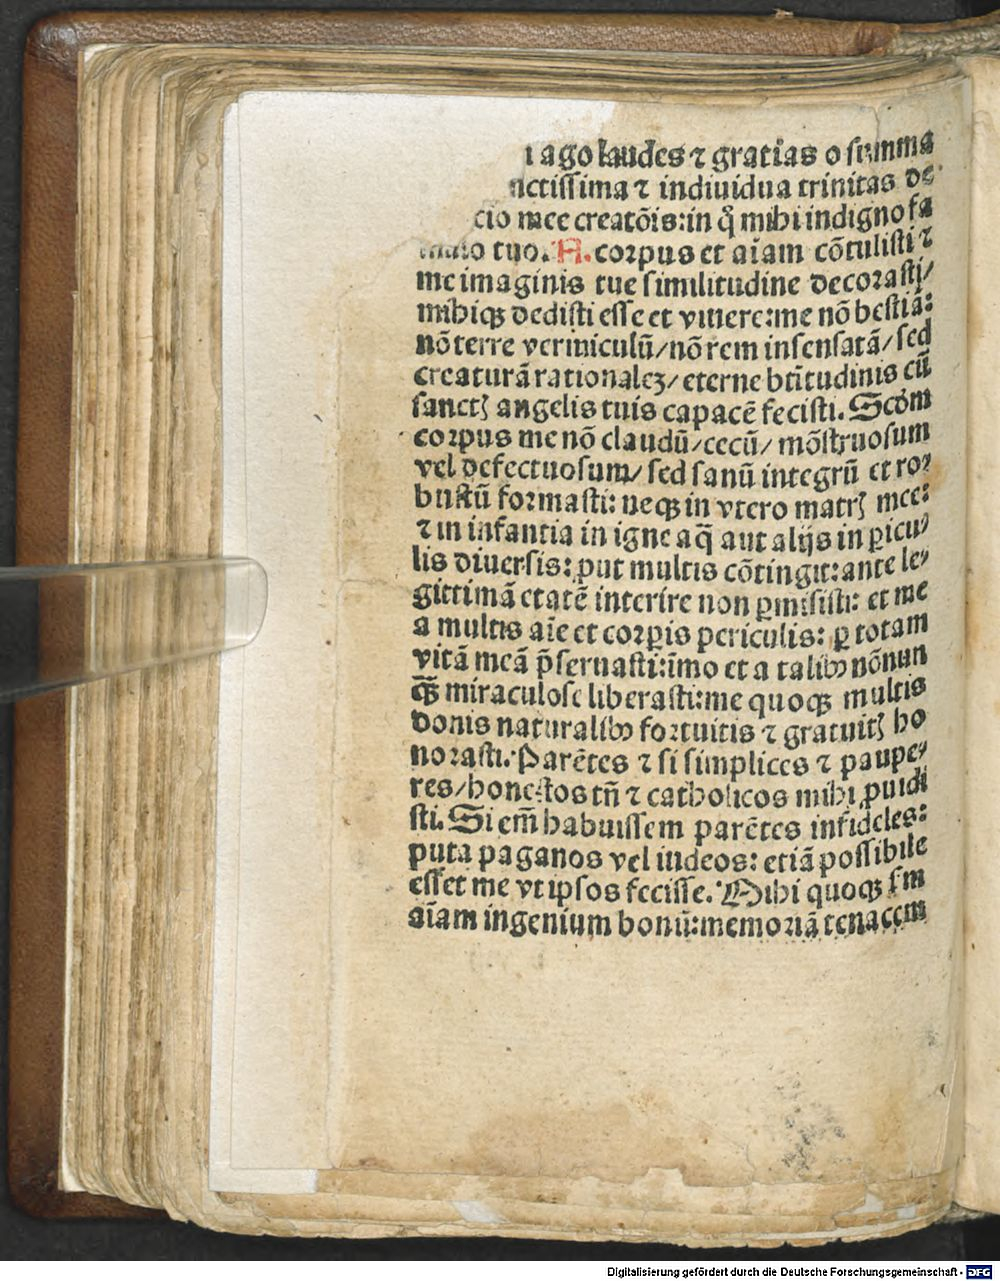 ago laudes ⁊ gratias o summa
nctissima ⁊ indiuidua trinitas de
cio mee creatōis: in q̄ mihi indigno fa
mulo tuo. A. corpus et aīam cōtulisti ⁊
me imaginis tue similitudine decorasti/
mihiqꝫ dedisti esse et viuere: me nō bestiā:
nō terre vermiculū/ nō rem insensatā/ sed
creaturā rationaleꝫ/ eterne btītudinis cū
sanctꝭ angelis tuis capacē fecisti. Scḋm
corpus me nō claudū/ cecū/ mōstruosum
vel defectuosum/ sed sanū integrū et ro⸗
bustū formasti: neqꝫ in vtero matrꝭ mee:
⁊ in infantia in igne aq̄ aut alijs in ꝑicu⸗
lis diuersis: ꝓut multis cōtingit: ante le⸗
gittimā etatē interire non ꝑmisisti: et me
a multis aīe et corꝑis periculis: ꝑ totam
vitā meā p̄seruasti: īmo et a talibꝫ nōnun
qꝫ̄ miraculose liberasti: me quoqꝫ multis
donis naturalibꝫ fortuitis ⁊ gratuitꝭ ho
norasti. Parētes ⁊ si simplices ⁊ paupe⸗
res/ honestos tn̄ ⁊ catholicos mihi ꝓuidi
sti. Si em̄ habuissem parētes infideles:
puta paganos vel iudeos: etiā possibile
esset me vt ipsos fecisse. Mihi quoqꝫ sm̄
aīam ingenium bonū: memoriā tenacem
Digitalisierung gefördert durch die Deutsche Forschungsgemeinschaft - DFG